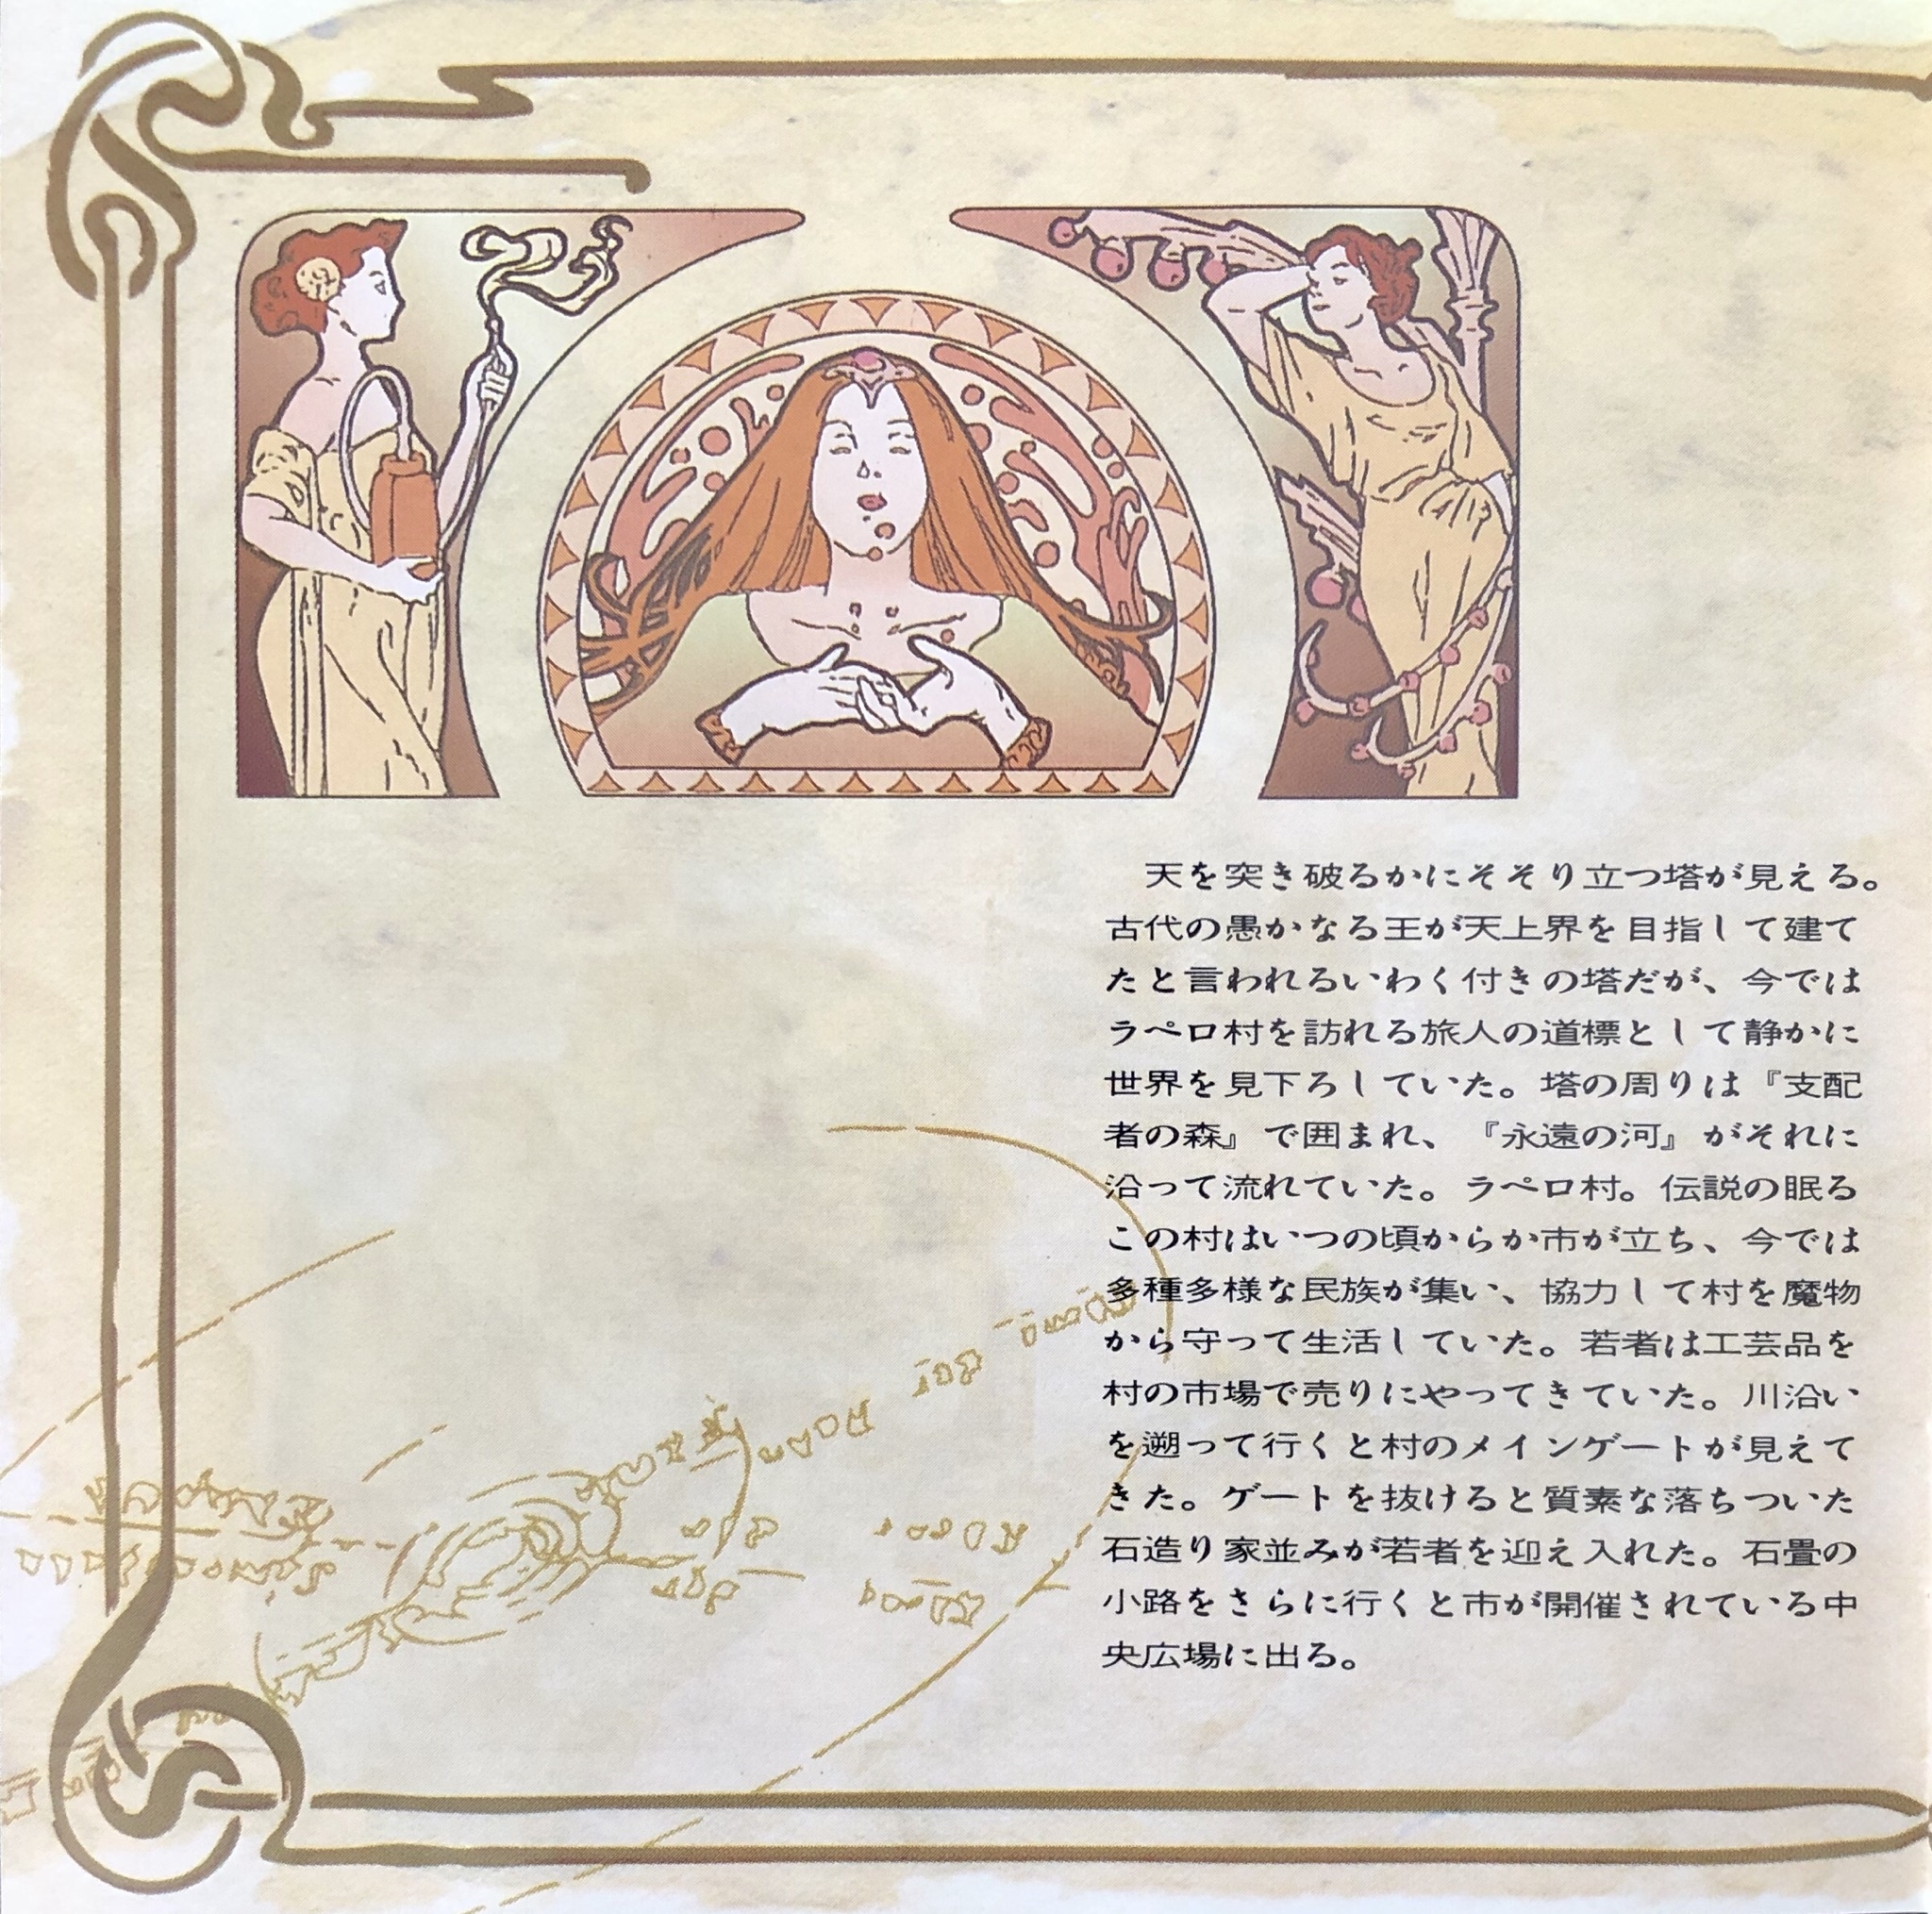 天を突き破るかにそそり立つ塔が見える。
古代の愚かなる王が天上界を目指して建て
たと言われるいわく付きの塔だが、今では
ラペロ村を訪れる旅人の道標として静かに
世界を見下ろしていた。塔の周りは『支配
者の森』で囲まれ、『永遠の河』がそれに
沿って流れていた。ラペロ村。伝説の眠る
この村はいつの頃からか市が立ち、今では
多種多様な民族が集い、協力して村を魔物
から守って生活していた。若者は工芸品を
村の市場で売りにやってきていた。川沿い
を遡って行くと村のメインゲートが見えて
きた。ゲートを抜けると質素な落ちついた
石造り家並みが若者を迎え入れた。石畳の
小路をさらに行くと市が開催されている中
央広場に出る。